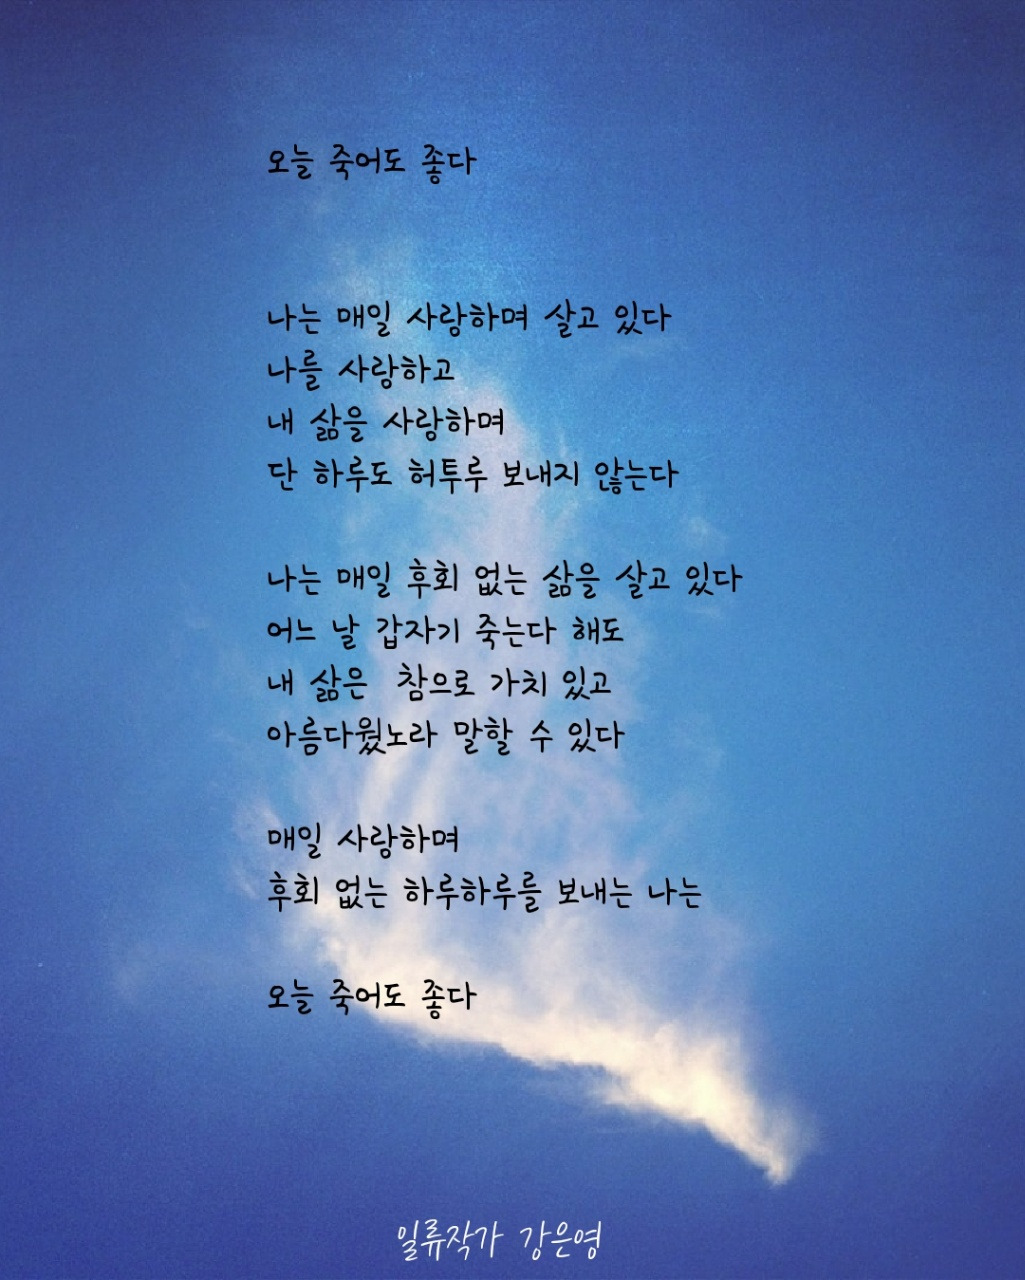 오늘 죽어도 좋다
나는 매일 사랑하며 살고 있다
나를 사랑하고
내 삶을 사랑하며
단 하루도 허투루 보내지 않는다
나는 매일 후회 없는 삶을 살고 있다
어느 날 갑자기 죽는다 해도
내 삶은 참으로 가치 있고
아름다웠노라 말할 수 있다
매일 사랑하며
후회 없는 하루하루를 보내는 나는
오늘 죽어도 좋다
일류작가 강은영